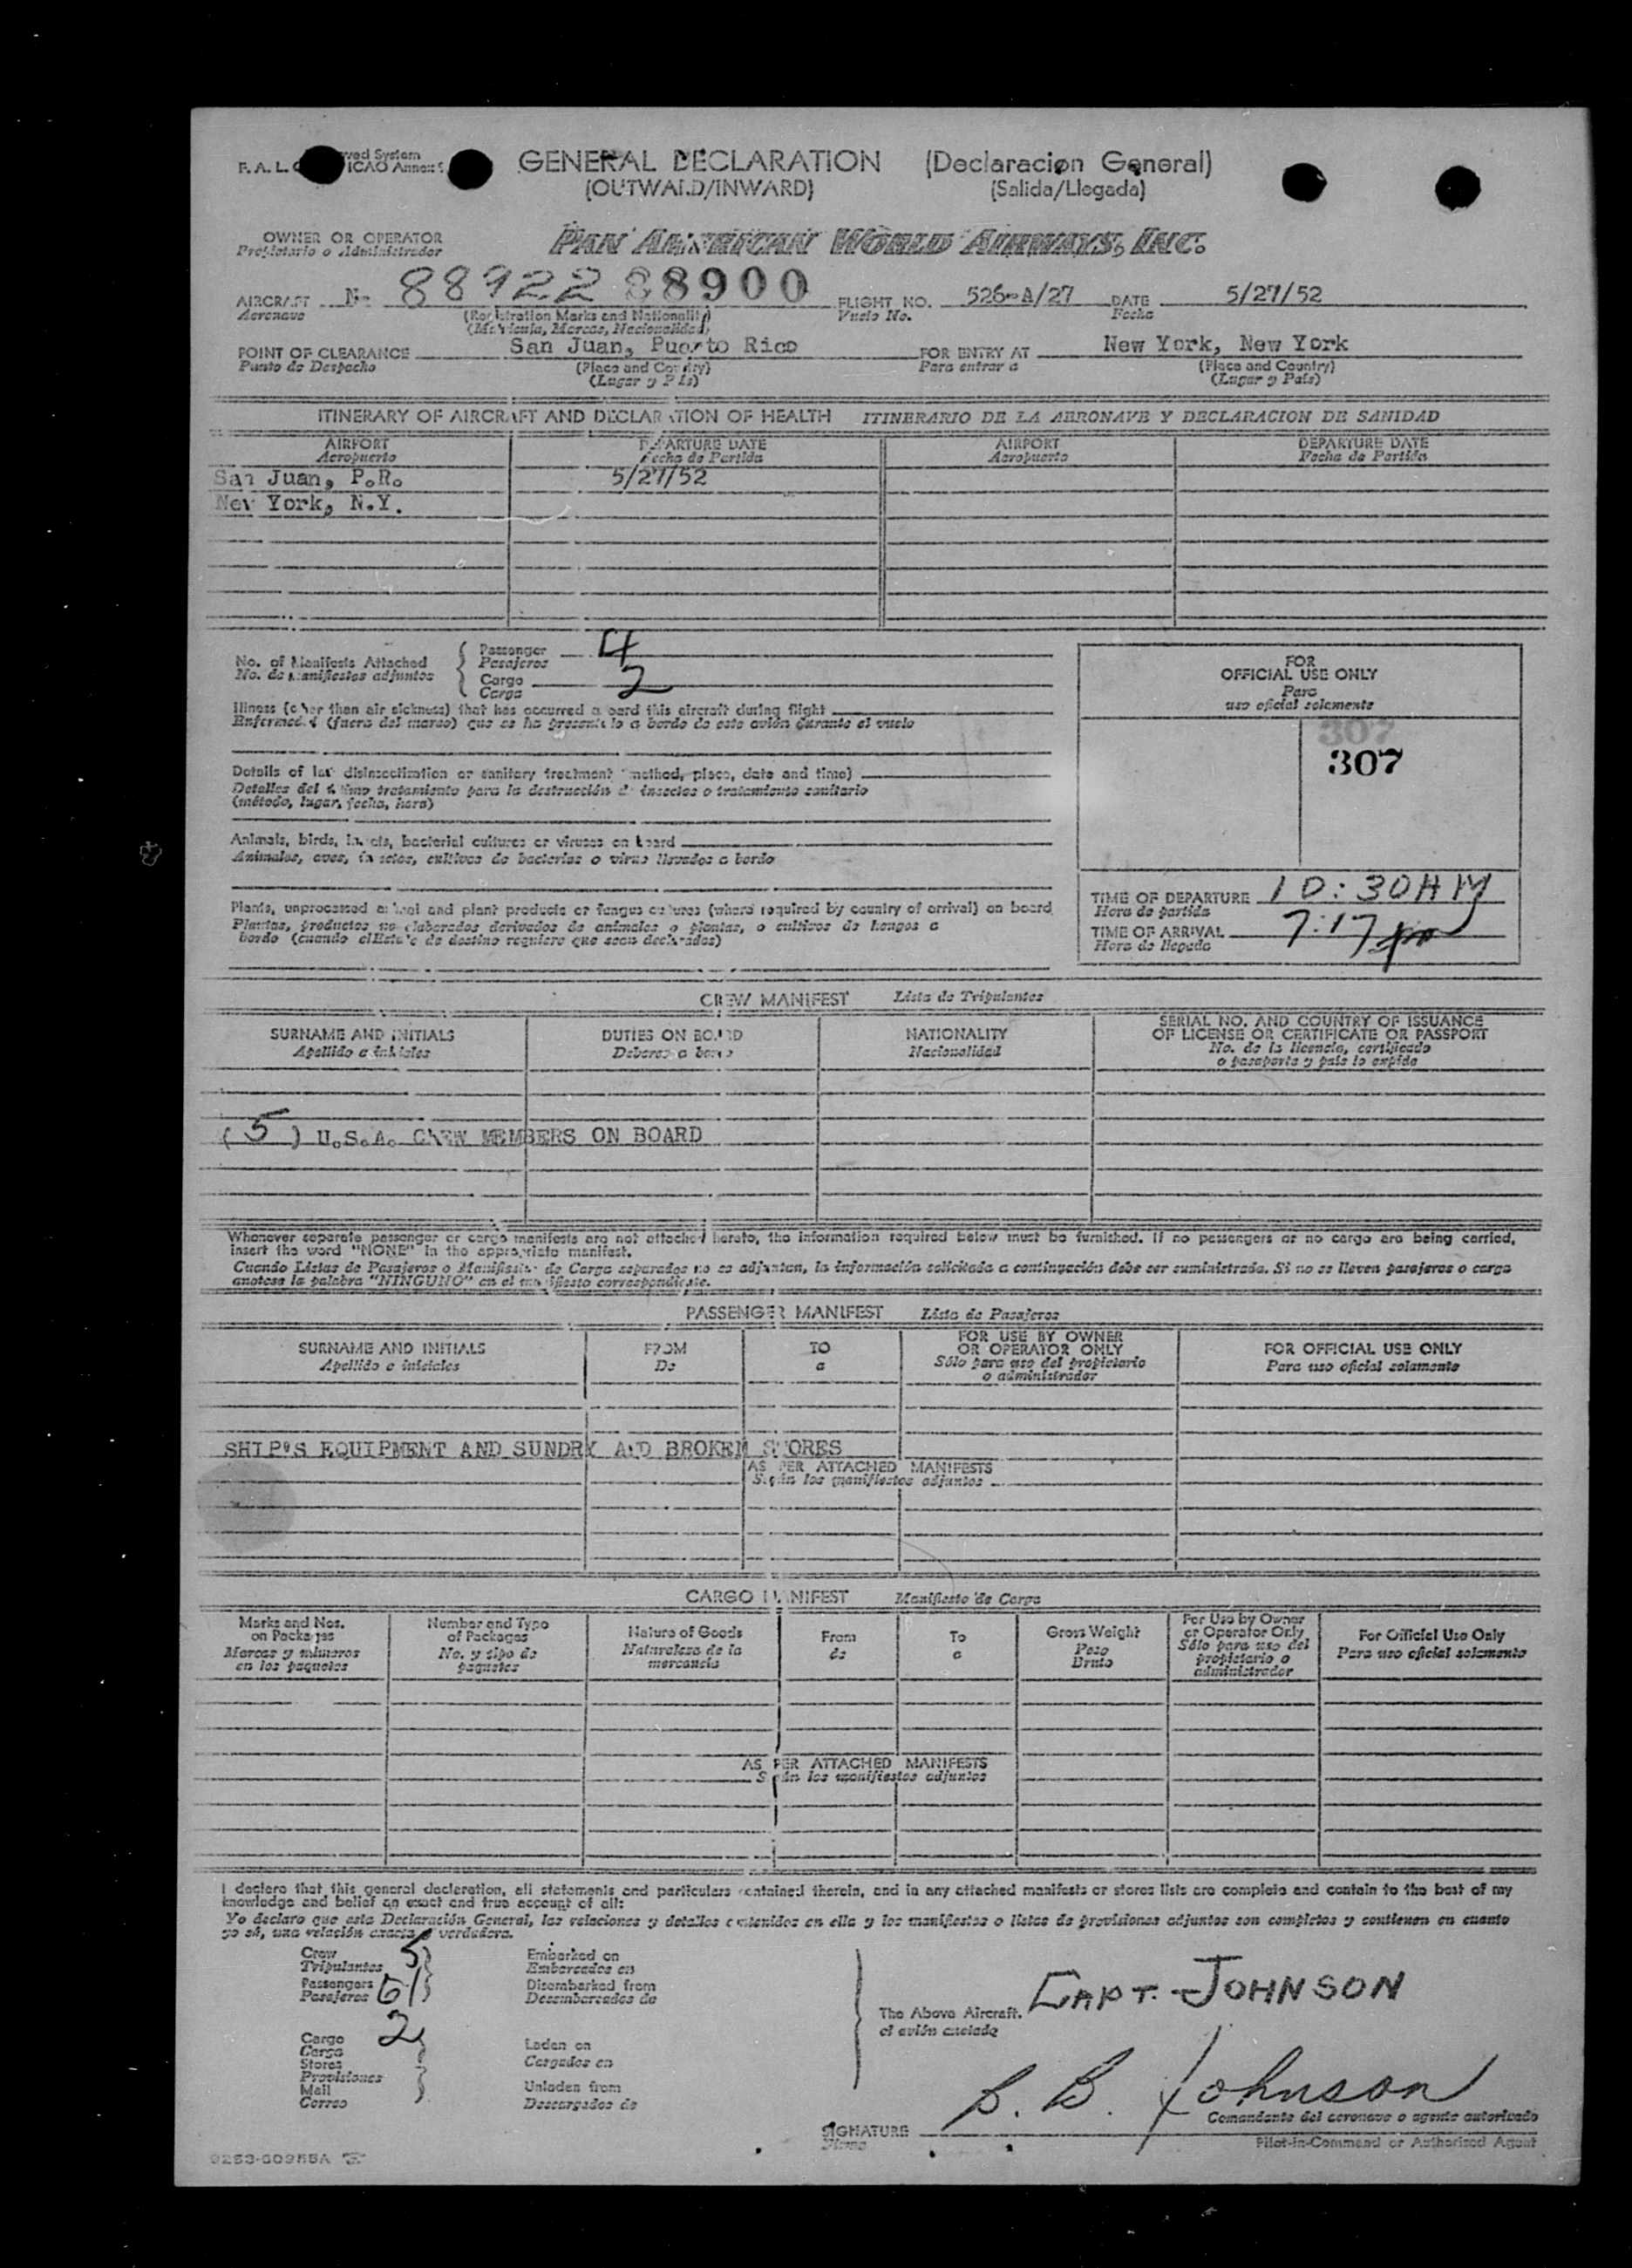 GENERAL DECLARATION (Declaracion General)
(OUTWARD/INWARD) (Salida/Llegada)
F. A. L. ICAO Annex 9,
OWNER OR OPERATOR PAN AMERICAN WORLD AIRWAYS, INC.
Propietario o Administrador
AIRCRAFT No 88922 88900 FLIGHT NO. 526-A/27 DATE 5/27/52
Aeronave (Registration Marks and Nationality) Vuelo No. Fecha
(Matricula, Marcas, Nacionalidad)
POINT OF CLEARANCE San Juan, Puerto Rico FOR ENTRY AT New York, New York
Punto de Despacho (Place and Country) Para entrar a (Place and Country)
(Lugar y País) (Lugar y País)
ITINERARY OF AIRCRAFT AND DECLARATION OF HEALTH ITINERARIO DE LA AERONAVE Y DECLARACION DE SANIDAD
AIRPORT DEPARTURE DATE AIRPORT DEPARTURE DATE
Aeropuerto Fecha de Partida Aeropuerto Fecha de Partida
San Juan, P.R. 5/27/52
New York, N.Y.
No. of Manifests Attached Passenger 4
No. de manifiestos adjuntos Pasajeros
Cargo 2
Carga
FOR
OFFICIAL USE ONLY
Para
uso oficial solamente
307
307
Illness (other than air sickness) that has occurred aboard this aircraft during flight
Enfermedad (fuera del mareo) que se ha presentado a bordo de este avión durante el vuelo
Details of last disinsectization or sanitary treatment (method, place, date and time)
Detalles del último tratamiento para la destrucción de insectos o tratamiento sanitario
(método, lugar, fecha, hora)
Animals, birds, insects, bacterial cultures or viruses on board
Animales, aves, insectos, cultivos de bacterias o virus llevados a bordo
Plants, unprocessed animal and plant products or fungus cultures (where required by country of arrival) on board
Plantas, productos no elaborados derivados de animales o plantas, o cultivos de hongos a
bordo (cuando el Estado de destino requiere que sean declarados)
TIME OF DEPARTURE 10:30AM
Hora de partida
TIME OF ARRIVAL 7:17 pm
Hora de llegada
CREW MANIFEST Lista de Tripulantes
SURNAME AND INITIALS DUTIES ON BOARD NATIONALITY SERIAL NO. AND COUNTRY OF ISSUANCE
OF LICENSE OR CERTIFICATE OR PASSPORT
Apellido e iniciales Deberes a bordo Nacionalidad No. de la licencia, certificado
o pasaporte y país lo expide
( 5 ) U.S.A. CREW MEMBERS ON BOARD
Whenever separate passenger or cargo manifests are not attached hereto, the information required below must be furnished. If no passengers or no cargo are being carried,
insert the word "NONE" in the appropriate manifest.
Cuando Listas de Pasajeros o Manifiestos de Carga separados no se adjuntan, la información solicitada a continuación debe ser suministrada. Si no se lleven pasajeros o carga
anotese la palabra "NINGUNO" en el manifiesto correspondiente.
PASSENGER MANIFEST Lista de Pasajeros
SURNAME AND INITIALS FROM TO FOR USE BY OWNER
OR OPERATOR ONLY FOR OFFICIAL USE ONLY
Apellido e iniciales De a Sólo para uso del propietario
o administrador Para uso oficial solamente
SHIP'S EQUIPMENT AND SUNDRY AND BROKEN STORES
AS PER ATTACHED MANIFESTS
Según los manifiestos adjuntos
CARGO MANIFEST Manifiesto de Carga
Marks and Nos.
on Packages
Marcas y números
en los paquetes
Number and Type
of Packages
No. y tipo de
paquetes
Nature of Goods
Naturaleza de la
mercancía
From
de
To
a
Gross Weight
Peso
Bruto
For Use by Owner
or Operator Only
Sólo para uso del
propietario o
administrador
For Official Use Only
Para uso oficial solamente
AS PER ATTACHED MANIFESTS
Según los manifiestos adjuntos
I declare that this general declaration, all statements and particulars contained therein, and in any attached manifests or stores lists are complete and contain to the best of my
knowledge and belief an exact and true account of all:
Yo declaro que esta Declaración General, las relaciones y detalles contenidos en ella y los manifiestos o listas de provisiones adjuntos son completos y contienen en cuanto
yo sé, una relación exacta y verdadera.
Crew 5 Embarked on
Tripulantes Embarcados en
Passengers 61 Disembarked from
Pasajeros Desembarcados de
Cargo 2 Laden on
Carga Cargados en
Stores
Provisiones
Mail Unladen from
Correo Descargados de
The Above Aircraft. CAPT. JOHNSON
el avión citado
B. B. Johnson
Comandante del aeronave o agente autorizado
SIGNATURE
Firma
Pilot-in-Command or Authorized Agent